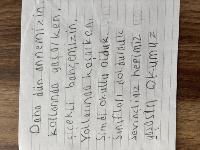 Daha dün annemizin,
kollarında yaşarken,
çiçekli bahçemizin,
Yollarında koşarken,
Şimdi okullu olduk,
Sınıfları doldurduk
sevinçliyiz hepimiz
yaşasın okumuz